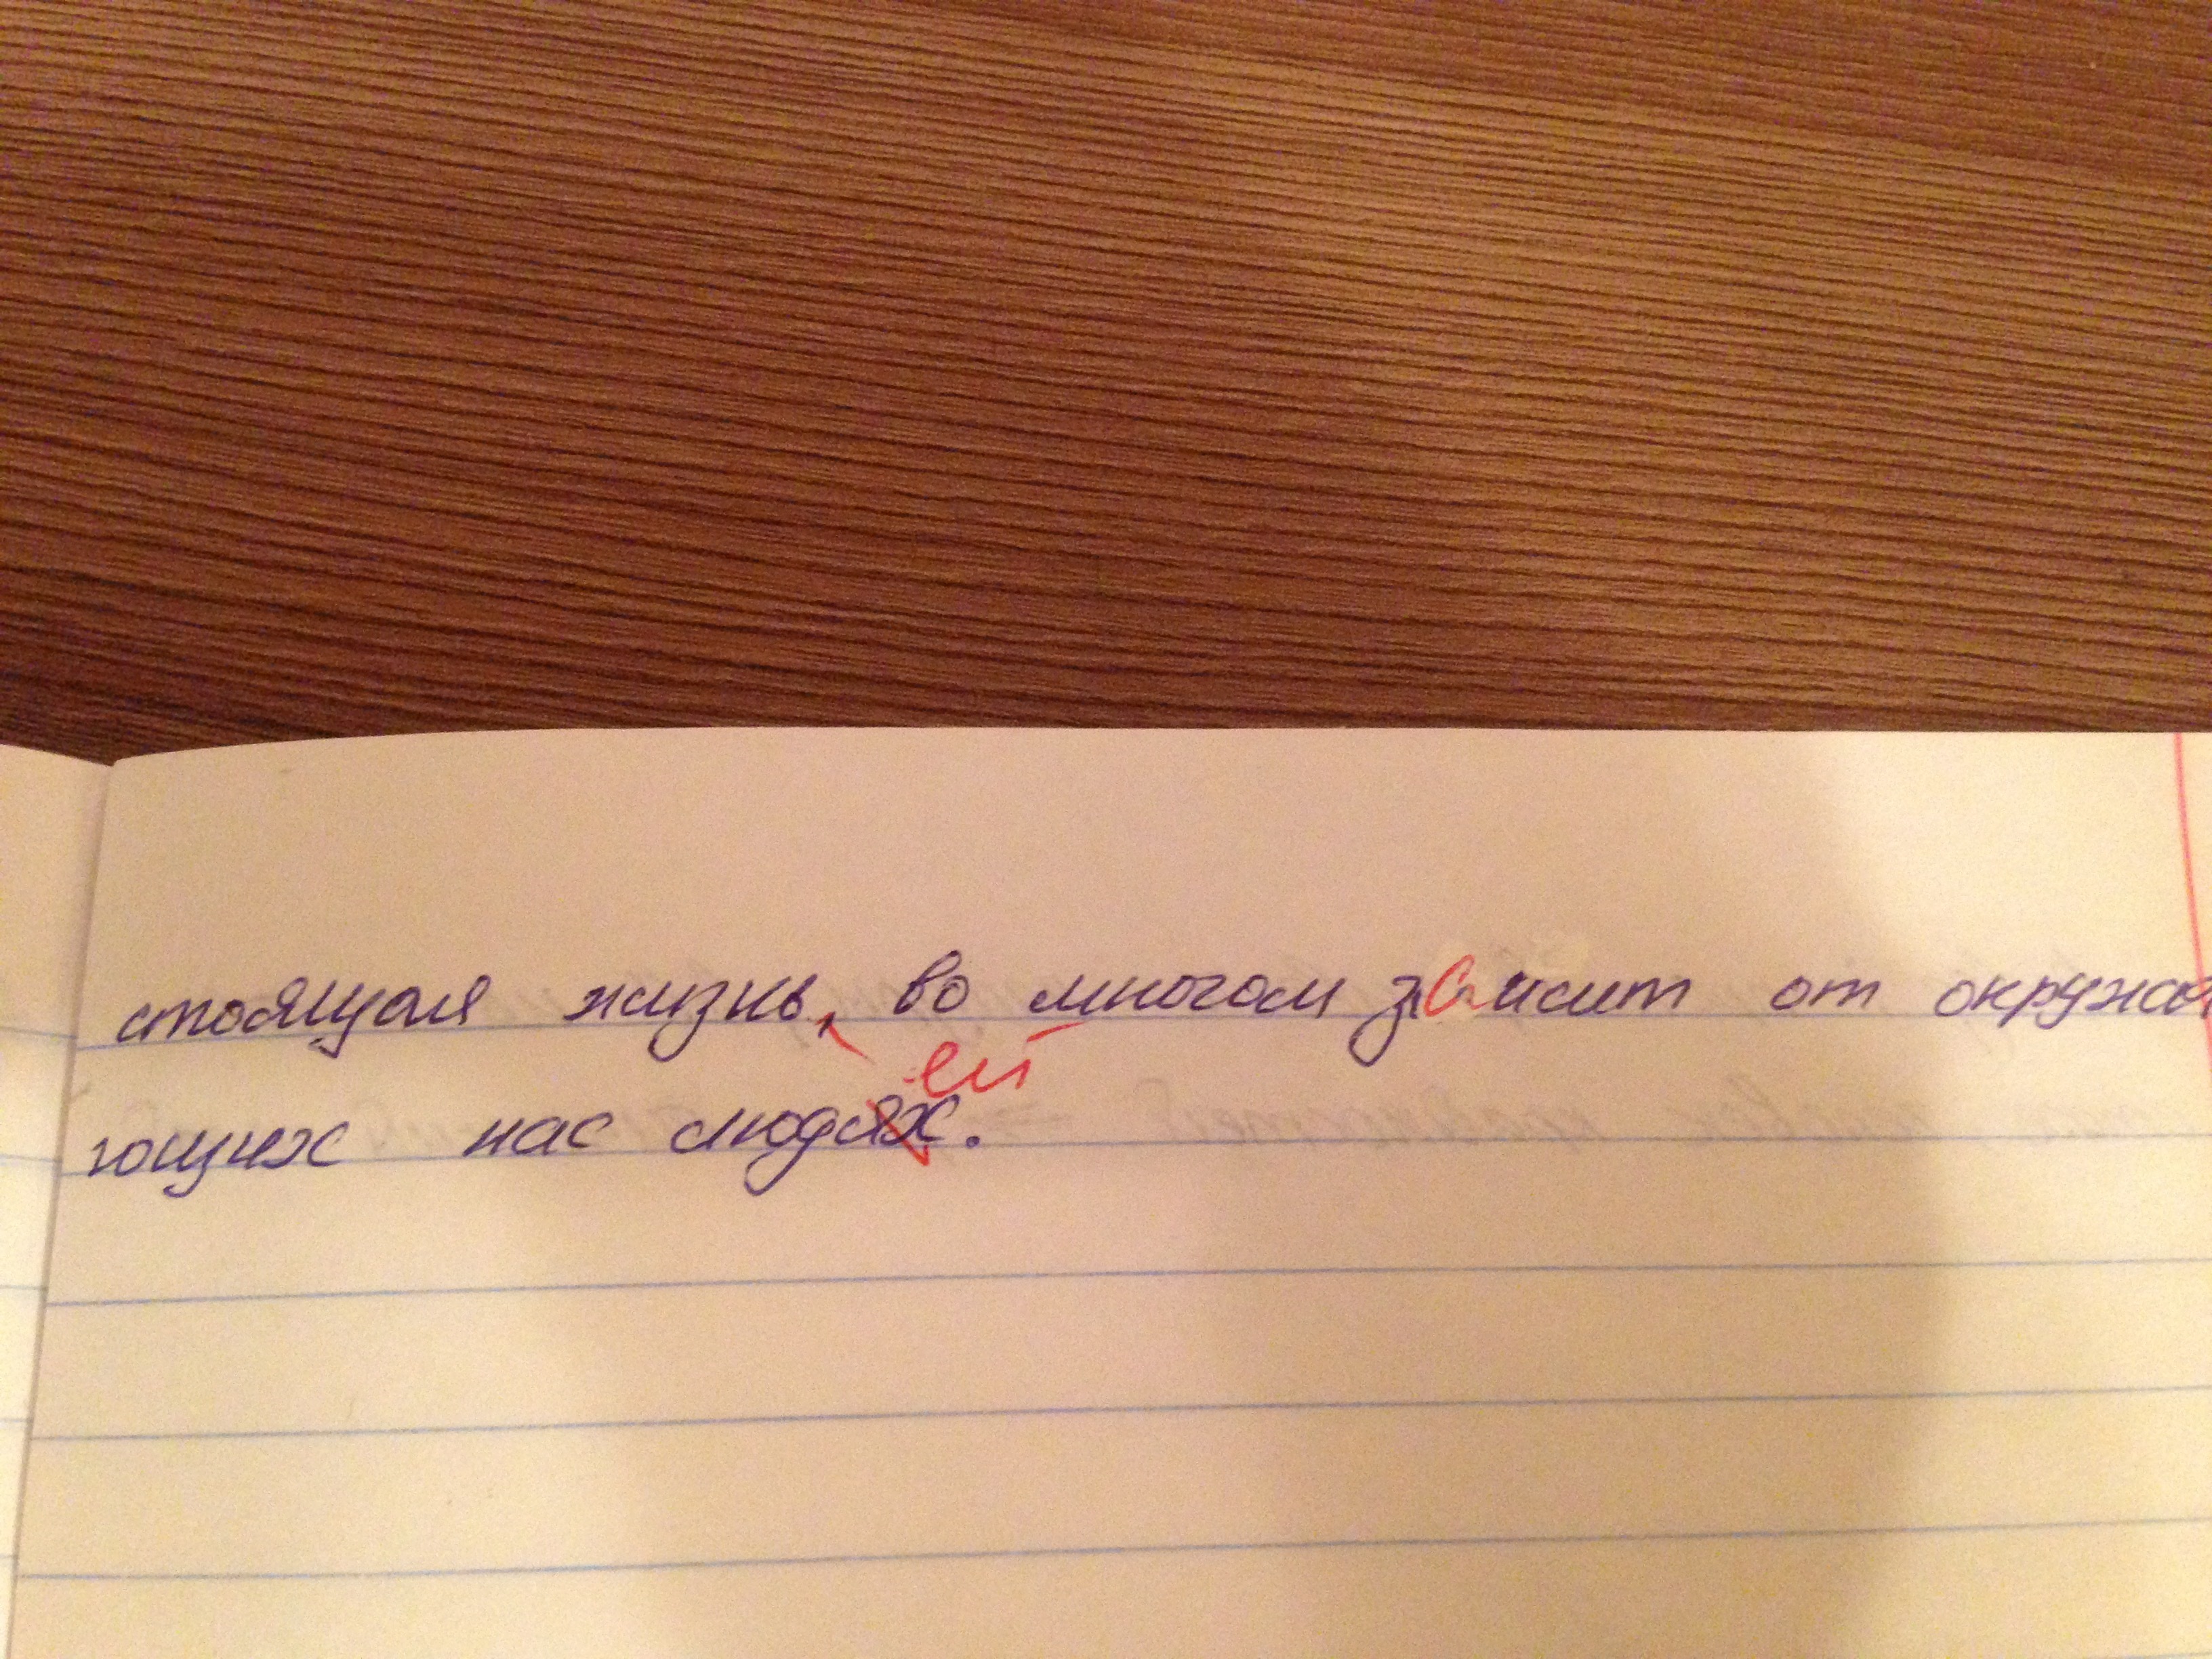 стоящая жизнь, во многом зависит от окружа
ей
ющих нас людях.